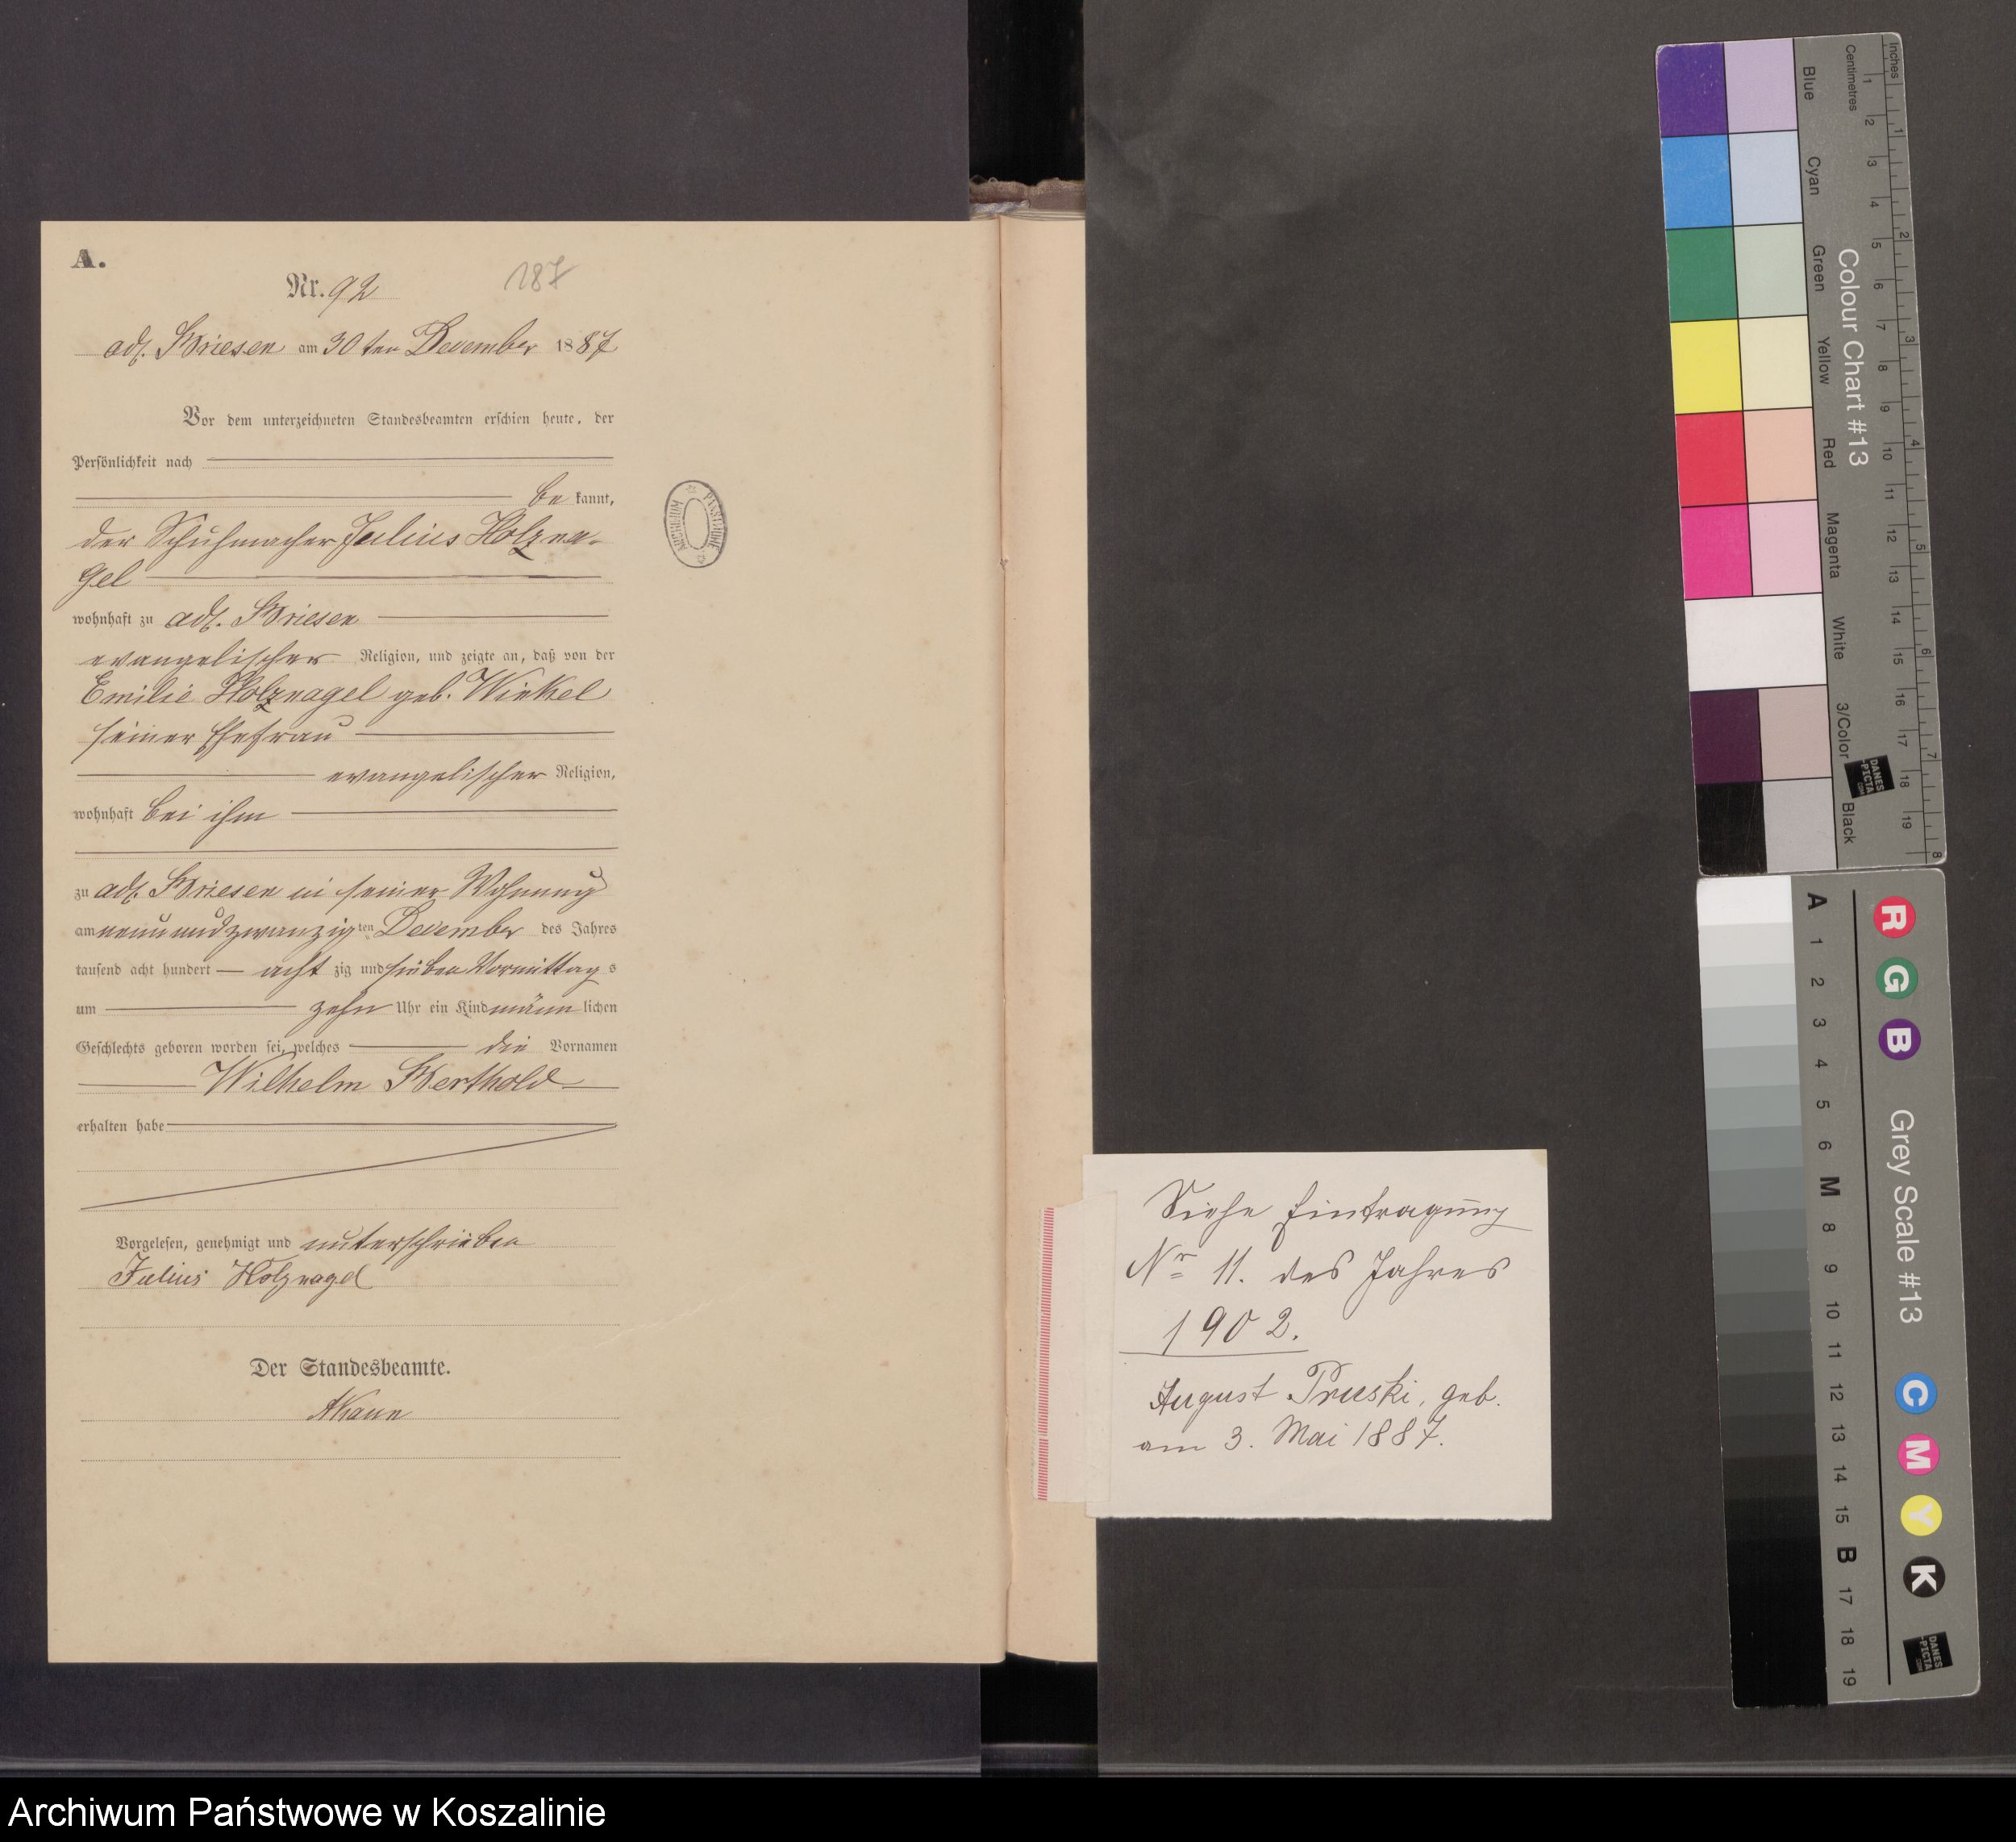 A.
Nr. 92
187
adl. Briesen am 30 ten December 1887
Vor dem unterzeichneten Standesbeamten erschien heute, der
Persönlichkeit nach
be kannt,
der Schuhmacher Julius Holzna-
gel
wohnhaft zu adl. Briesen
evangelischer Religion, und zeigte an, daß von der
Emilie Holznagel geb. Winkel
seiner Ehefrau
evangelischer Religion,
wohnhaft bei ihm
zu adl. Briesen in seiner Wohnung
am neunundzwanzig ten December des Jahres
tausend acht hundert acht zig und sieben Vormittag s
um zehn Uhr ein Kind männ lichen
Geschlechts geboren worden sei, welches die Vornamen
Wilhelm Berthold
erhalten habe
Vorgelesen, genehmigt und unterschrieben
Julius Holznagel
Der Standesbeamte.
ARCHIWUM PAŃSTWOWE
Siehe Eintragung
Nr 11. des Jahres
1902.
August Pruski, geb.
am 3. Mai 1887.
Inches 1 2 3 4 5 6 7 8
Centimetres 1 2 3 4 5 6 7 8 9 10 11 12 13 14 15 16 17 18 19
Colour Chart #13
Blue Cyan Green Yellow Red Magenta White 3/Color Black
DANES-PICTA.COM
A 1 2 3 4 5 6 M 8 9 10 11 12 13 14 15 B 17 18 19
R G B
Grey Scale #13
C M Y K
DANES-PICTA.COM
Archiwum Państwowe w Koszalinie